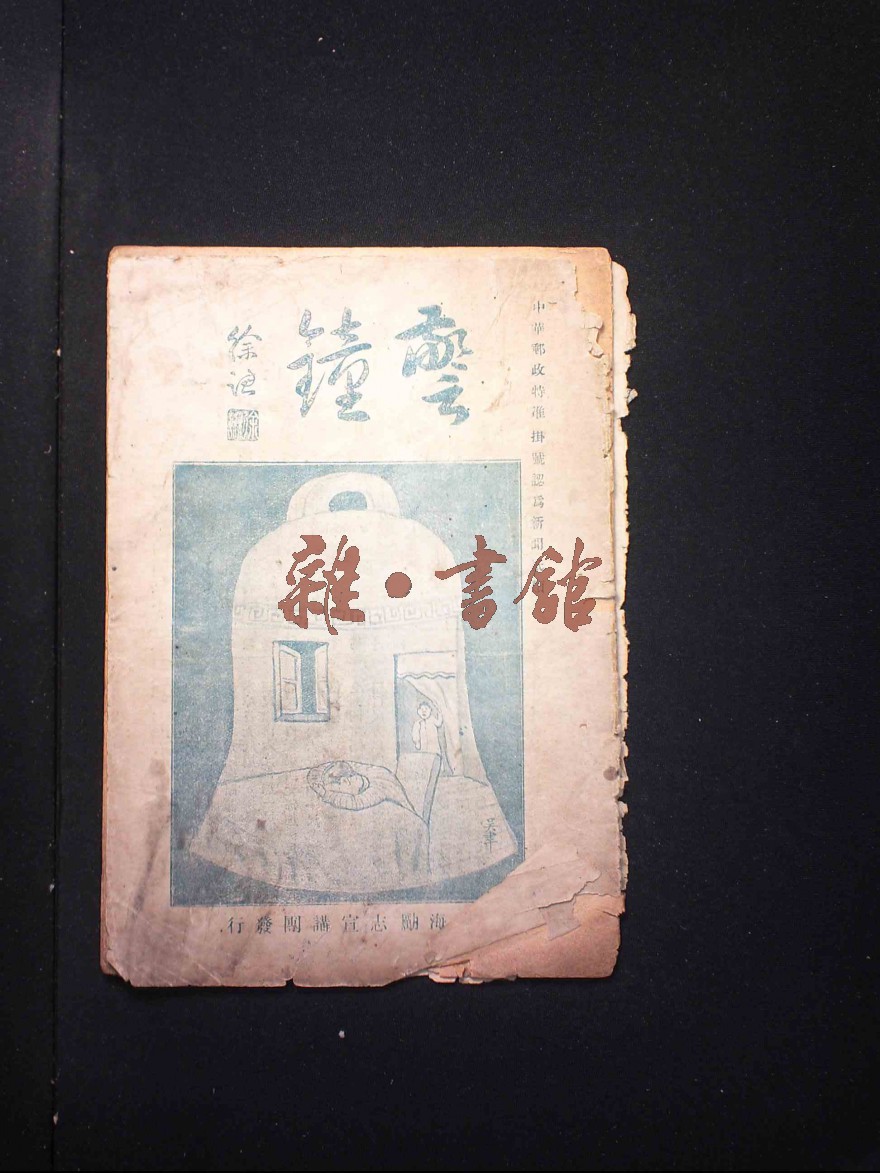 中華郵政特准掛號認爲新聞
警鐘
徐
雜·書館
海勵志宣講團發行